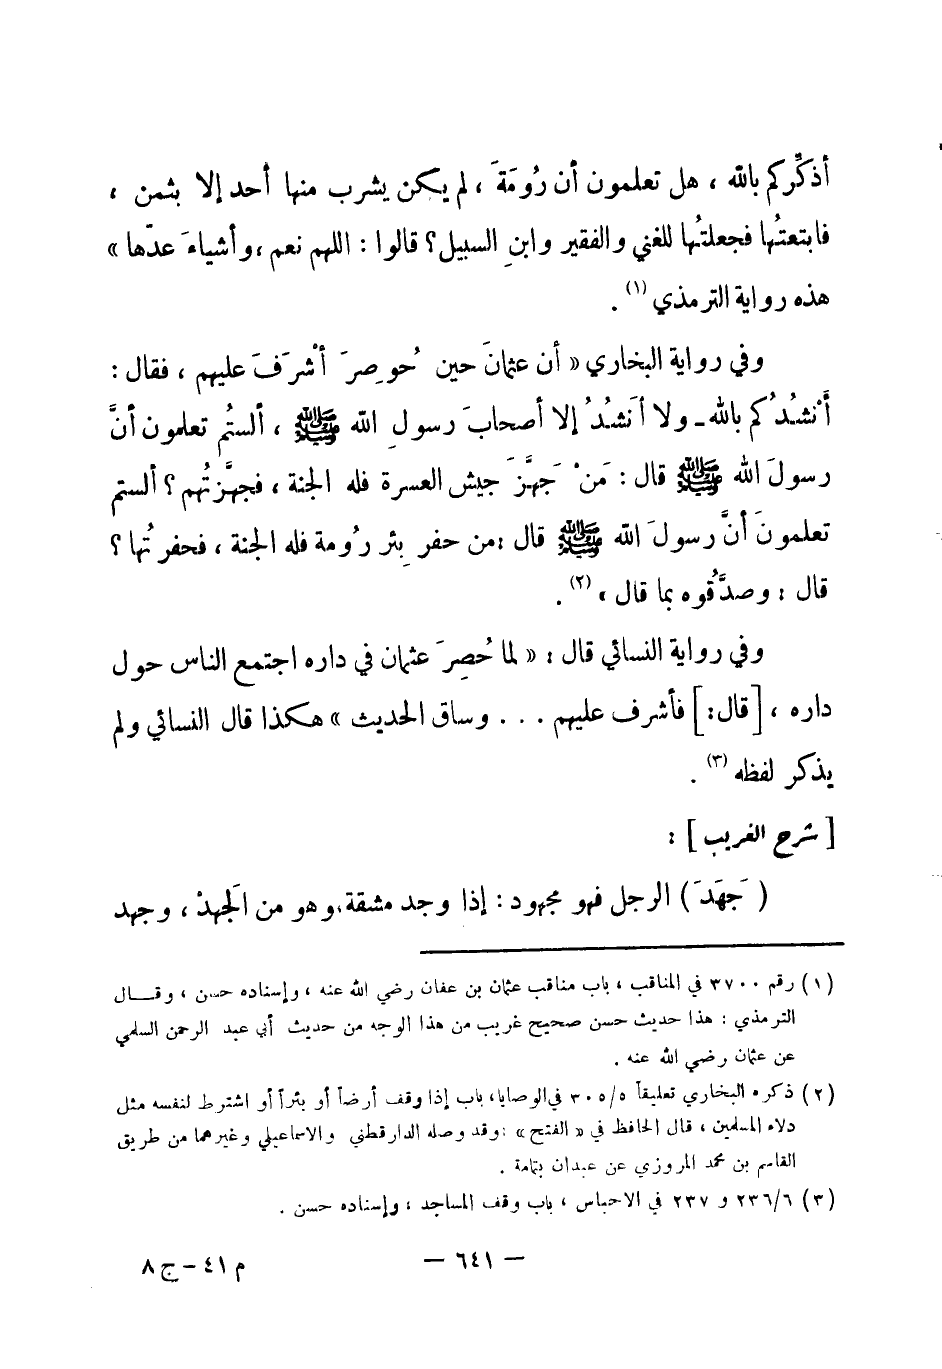 أذكِّركم بالله ، هل تعلمون أن رُومَةَ ، لم يكن يشرب منها أحد إلا بثمن ،
فابتعتُها فجعلتُها للغني والفقير وابنِ السبيل ؟ قالوا : اللهم نعم ، وأشياءَ عدّها »
هذه رواية الترمذي (١) .
وفي رواية البخاري « أن عثمانَ حين حُوصِرَ أشْرَفَ عليهم ، فقال :
أنْشُدُكم بالله - ولا أنشُدُ إلا أصحابَ رسولِ الله ﷺ ، ألستُم تعلمون أنَّ
رسولَ الله ﷺ قال : مَنْ جَهَّزَ جيش العسرة فله الجنة ، فجهَّزتُهم ؟ ألستم
تعلمونَ أنَّ رسولَ الله ﷺ قال : من حفر بِئر رُومة فله الجنة ، فحفرتُها ؟
قال : وصدَّقُوه بما قال » (٢) .
وفي رواية النسائي قال : « لما حُصِرَ عثمان في داره اجتمع الناس حول
داره ، [ قال : ] فأشرف عليهم . . . وساق الحديث » هكذا قال النسائي ولم
يذكر لفظه (٣) .
[ شرح الغريب ] :
( جَهَدَ ) الرجل فهو مجهود : إذا وجد مشقة ، وهو من الجَهدْ ، وجهد
(١) رقم ٣٧٠٠ في المناقب ، باب مناقب عثمان بن عفان رضي الله عنه ، وإسناده حسن ، وقال
الترمذي : هذا حديث حسن صحيح غريب من هذا الوجه من حديث أبي عبد الرحمن السلمي
عن عثمان رضي الله عنه .
(٢) ذكره البخاري تعليقاً ٣٠٥/٥ في الوصايا ، باب إذا وقف أرضاً أو بئراً أو اشترط لنفسه مثل
دلاء المسلمين ، قال الحافظ في « الفتح » : وقد وصله الدارقطني والاسماعيلي وغيرهما من طريق
القاسم بن محمد المروزي عن عبدان بتمامة .
(٣) ٢٣٦/٦ و ٢٣٧ في الاحباس ، باب وقف المساجد ، وإسناده حسن .
— ٦٤١ —
م ٤١ - ج ٨